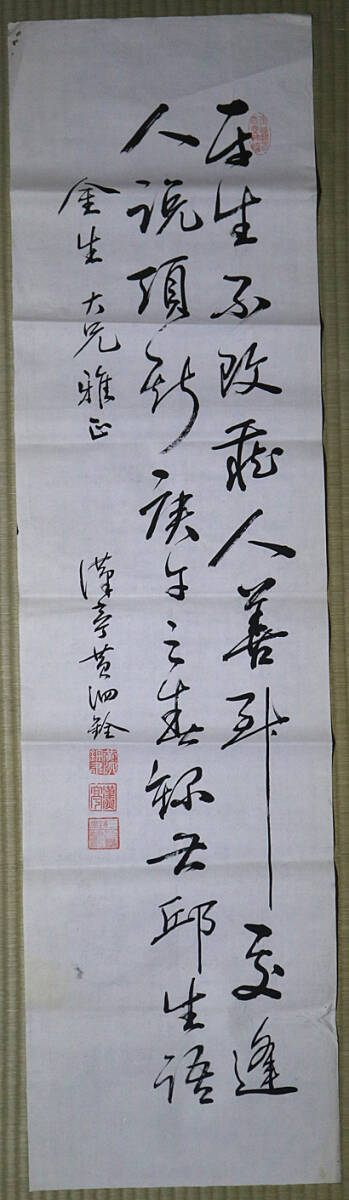 平生不敢藏人善到處逢
人說項斯庚午之春錄邱生語
金生大兄雅正
漢亭黃泗銓